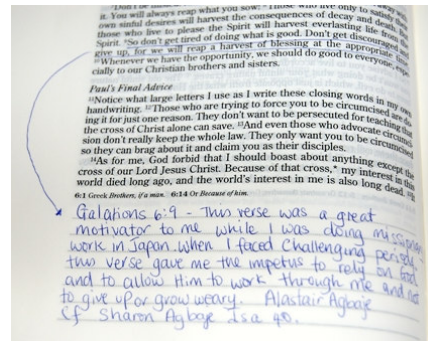 it. You will always reap what you sow! Those who live only to satisfy their
own sinful desires will harvest the consequences of decay and death. But
those who live to please the Spirit will harvest everlasting life from the
Spirit. So don't get tired of doing what is good. Don't get discouraged and
give up, for we will reap a harvest of blessing at the appropriate time.
Whenever we have the opportunity, we should do good to everyone, espe-
cially to our Christian brothers and sisters.
Paul's Final Advice
11Notice what large letters I use as I write these closing words in my own
handwriting. 12Those who are trying to force you to be circumcised are do-
ing it for just one reason. They don't want to be persecuted for teaching that
the cross of Christ alone can save. 13And even those who advocate circumci-
sion don't really keep the whole law. They only want you to be circumcised
so they can brag about it and claim you as their disciples.
14As for me, God forbid that I should boast about anything except the
cross of our Lord Jesus Christ. Because of that cross,* my interest in this
world died long ago, and the world's interest in me is also long dead.
6:1 Greek Brothers, if a man. 6:14 Or Because of him.
Galations 6:9 - This verse was a great
motivator to me while I was doing missionary
work in Japan. When I faced challenging periods
this verse gave me the impetus to rely on God
and to allow Him to work through me and not
to give up or grow weary. Alastair Agbaje
cf Sharon Agbaje Isa 40.